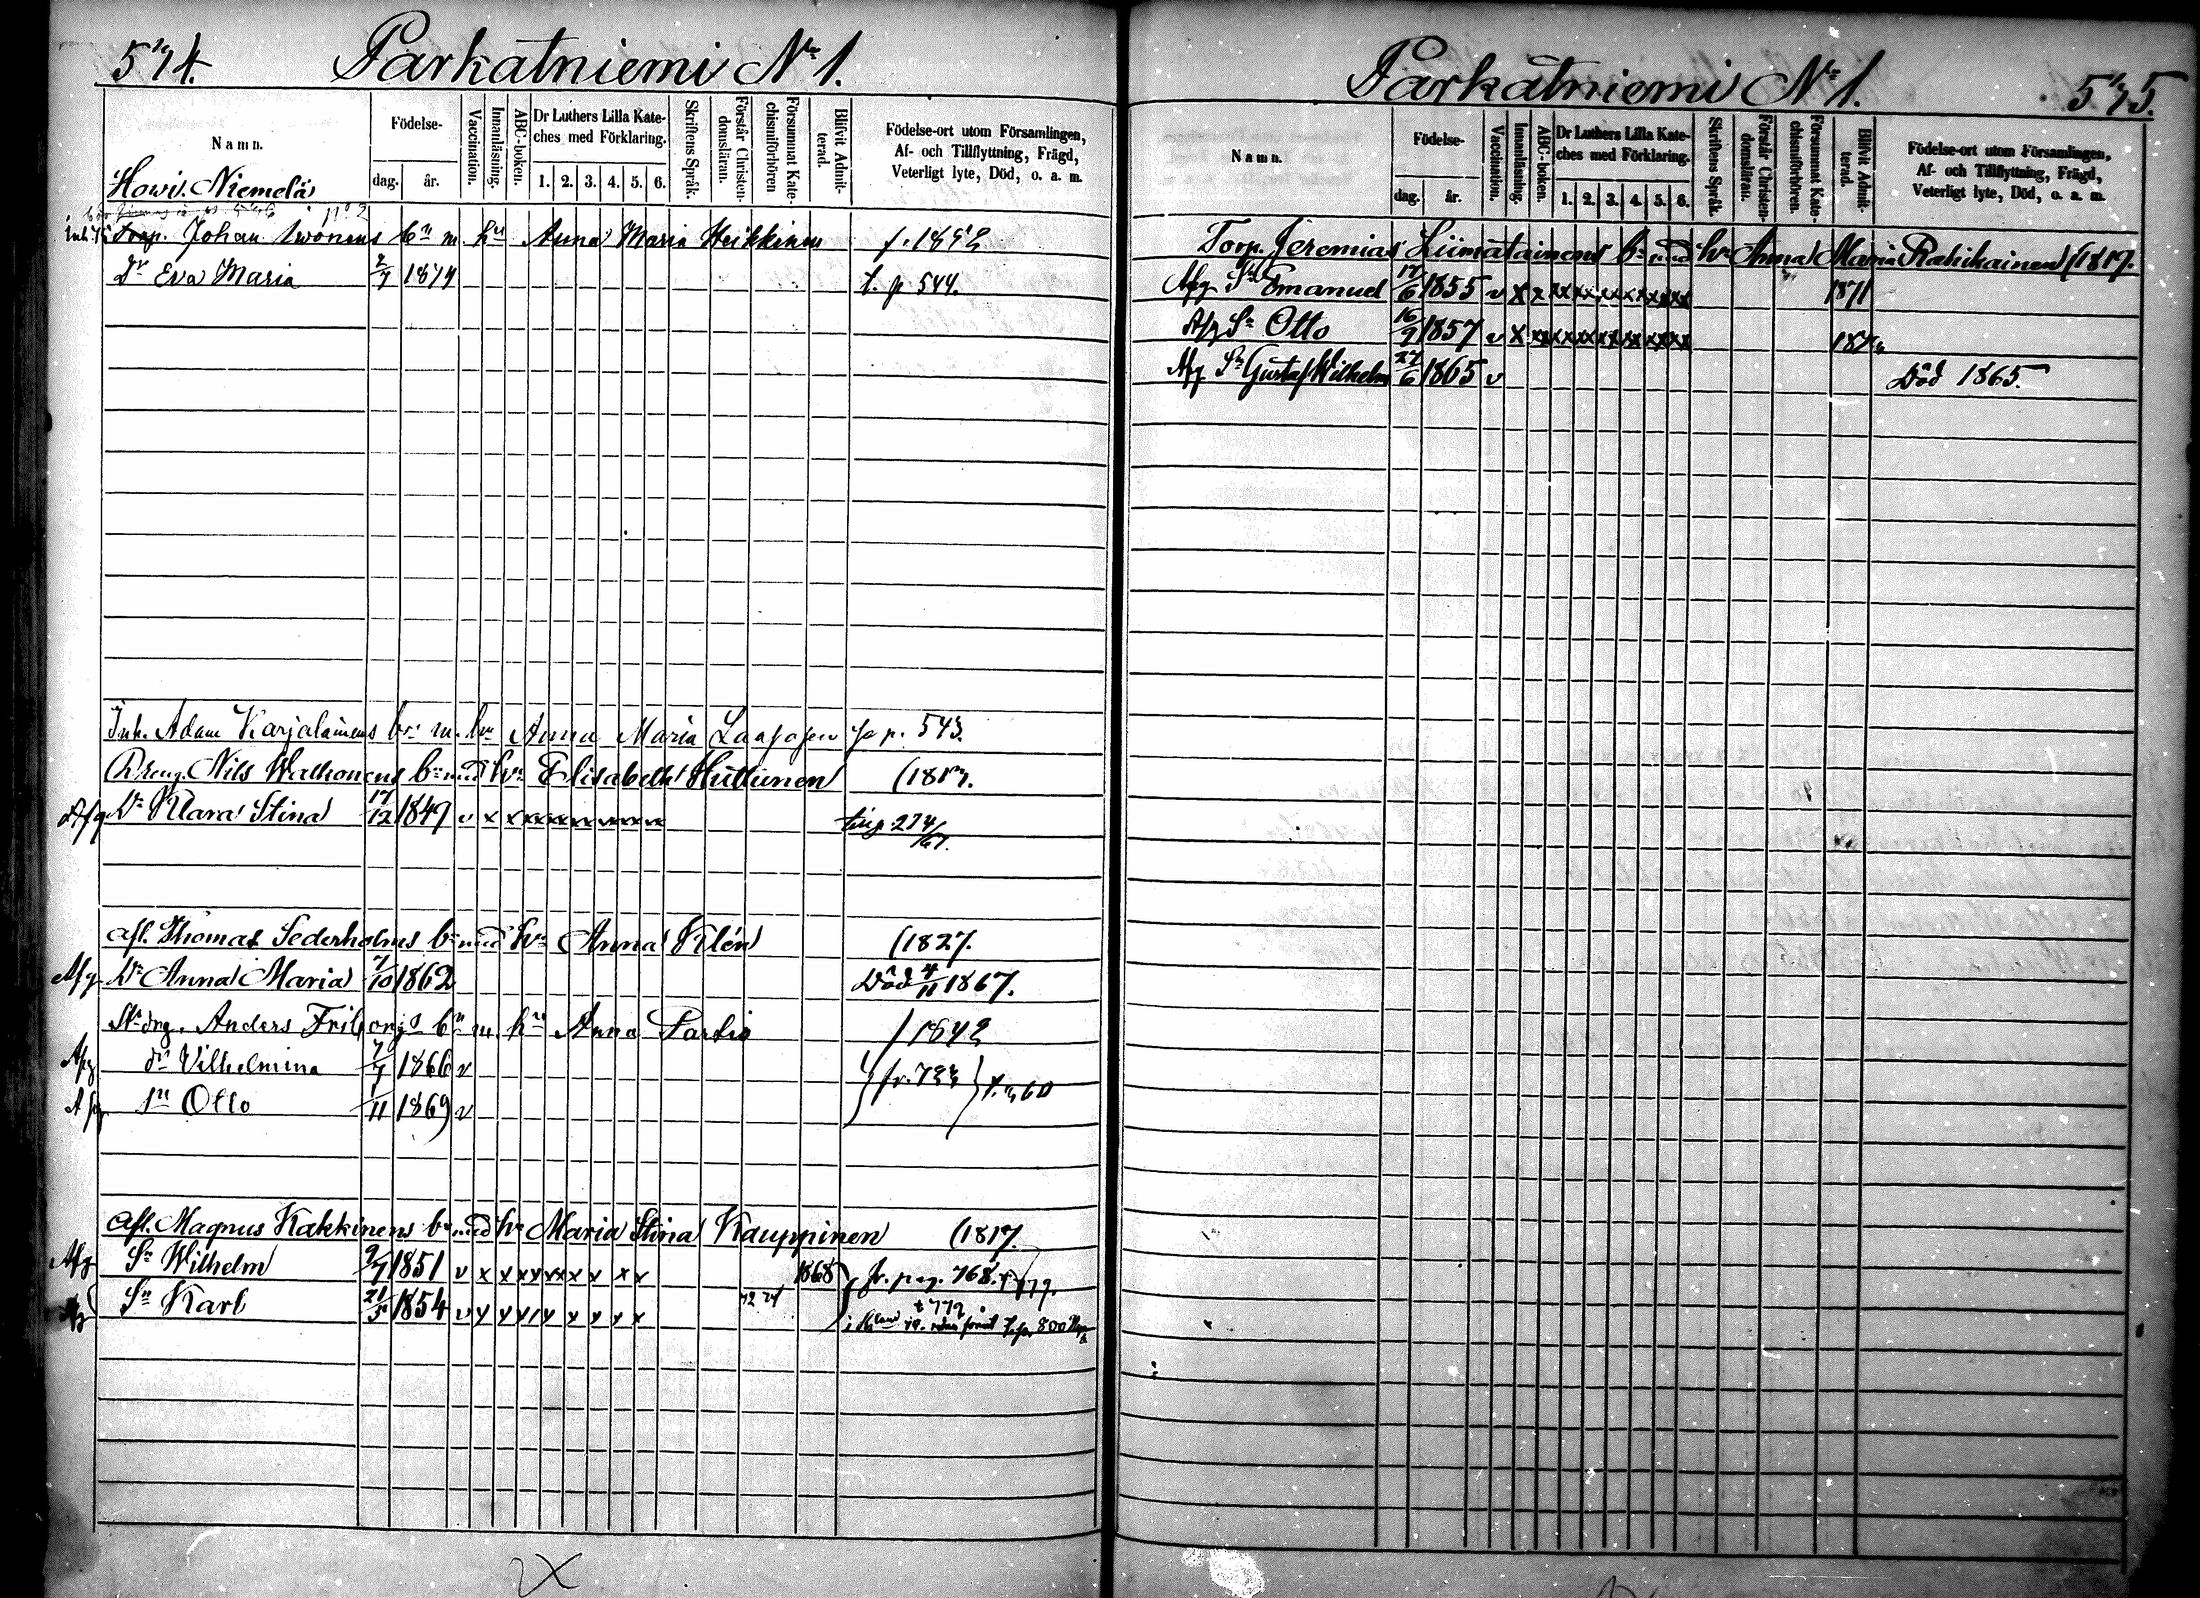 574.
Parkatniemi No 1.
Namn.
Födelse-
dag.
år.
Vaccination.
Innanläsning.
ABC-boken.
Dr Luthers Lilla Kate-
ches med Förklaring.
1. 2. 3. 4. 5. 6.
Skriftens Språk.
Förstår Christen-
domsläran.
Försummat Kate-
chismiförhören
Blifvit Admit-
terad.
Födelse-ort utom Församlingen,
Af- och Tillflyttning, Frägd,
Veterligt lyte, Död, o. a. m.
Howi. Niemelä
Torp. Johan Iivonens bn m. hu Anna Maria Heikkinen
Dr Eva Maria 2/7 1874 t. p 544.
Inh. Adam Karjalainens brn m. hu Anna Maria p. 543.
Dreng. Nils Walkonens bn med hu Elisabeth Huttunen (1817.
Afg Dr Klara Stina 17/12 1849 v x x xx xx xx xx xx xx 274/67.
afl. Thomas Sederholms bn med hu Anna Klén (1827.
Afg Dr Anna Maria 7/10 1862 Död 4/11 1867.
drg. Anders bn m. hu Anna Partio f 1842
Afg dr Vilhelmina 7/7 1866 v
Afg sn Otto 1/11 1869 v
afl. Magnus Kakkinens bn med hu Maria Stina Kauppinen (1817.
Afg Sn Wilhelm 9/7 1851 v x x xx xx x x x 1868 fr. pag. 768.
Sn Karl 21/5 1854 v x x xx x x x x x 72 74 t 772
Parkatniemi No 1.
575.
Namn.
Födelse-
dag.
år.
Vaccination.
Innanläsning.
ABC-boken.
Dr Luthers Lilla Kate-
ches med Förklaring.
1. 2. 3. 4. 5. 6.
Skriftens Språk.
Förstår Christen-
domsläran.
Försummat Kate-
chismiförhören.
Blifvit Admit-
terad.
Födelse-ort utom Församlingen,
Af- och Tillflyttning, Frägd,
Veterligt lyte, Död, o. a. m.
Torp. Jeremias Liimatainens bn med hu Anna Maria Rahikainen (1817.
Afg Sn Emanuel 17/6 1855 v x x xx xx xx xx xx xx 1871
Afg Sn Otto 16/9 1857 v x xx xx xx xx xx xx xx
Afg Sn Gustaf Wilhelm 27/6 1865 v Död 1865.